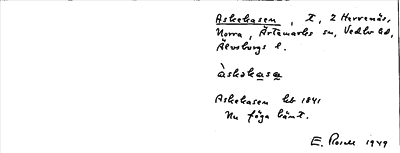 Askekasen, t, 2 Herrenäs,
Norra, Ärtemarks sn, Vedbo hd,
Älvsborgs l.
àskəkasa
Askekasen hb 1841
Nu föga känt.
E. Rosell 1949